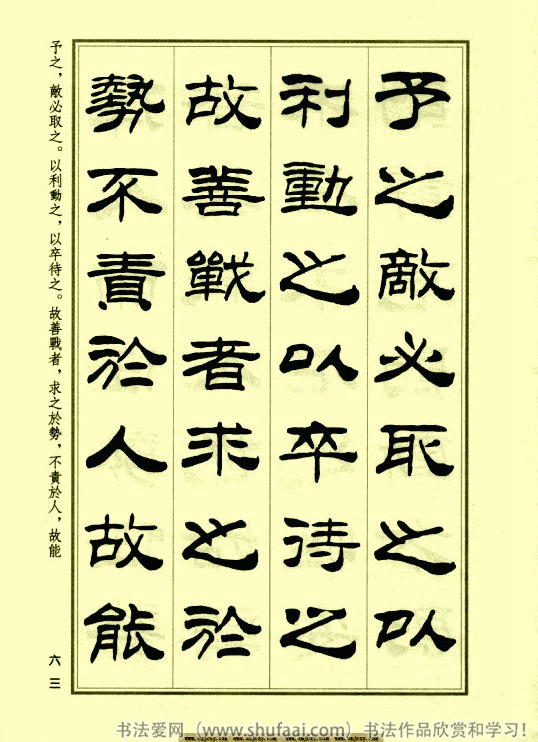 予之敵必取之以
利動之以卒待之
故善戰者求之於
勢不責於人故能
予之，敵必取之。以利動之，以卒待之。故善戰者，求之於勢，不責於人，故能
六三
书法爱网（www.shufaai.com）书法作品欣赏和学习！